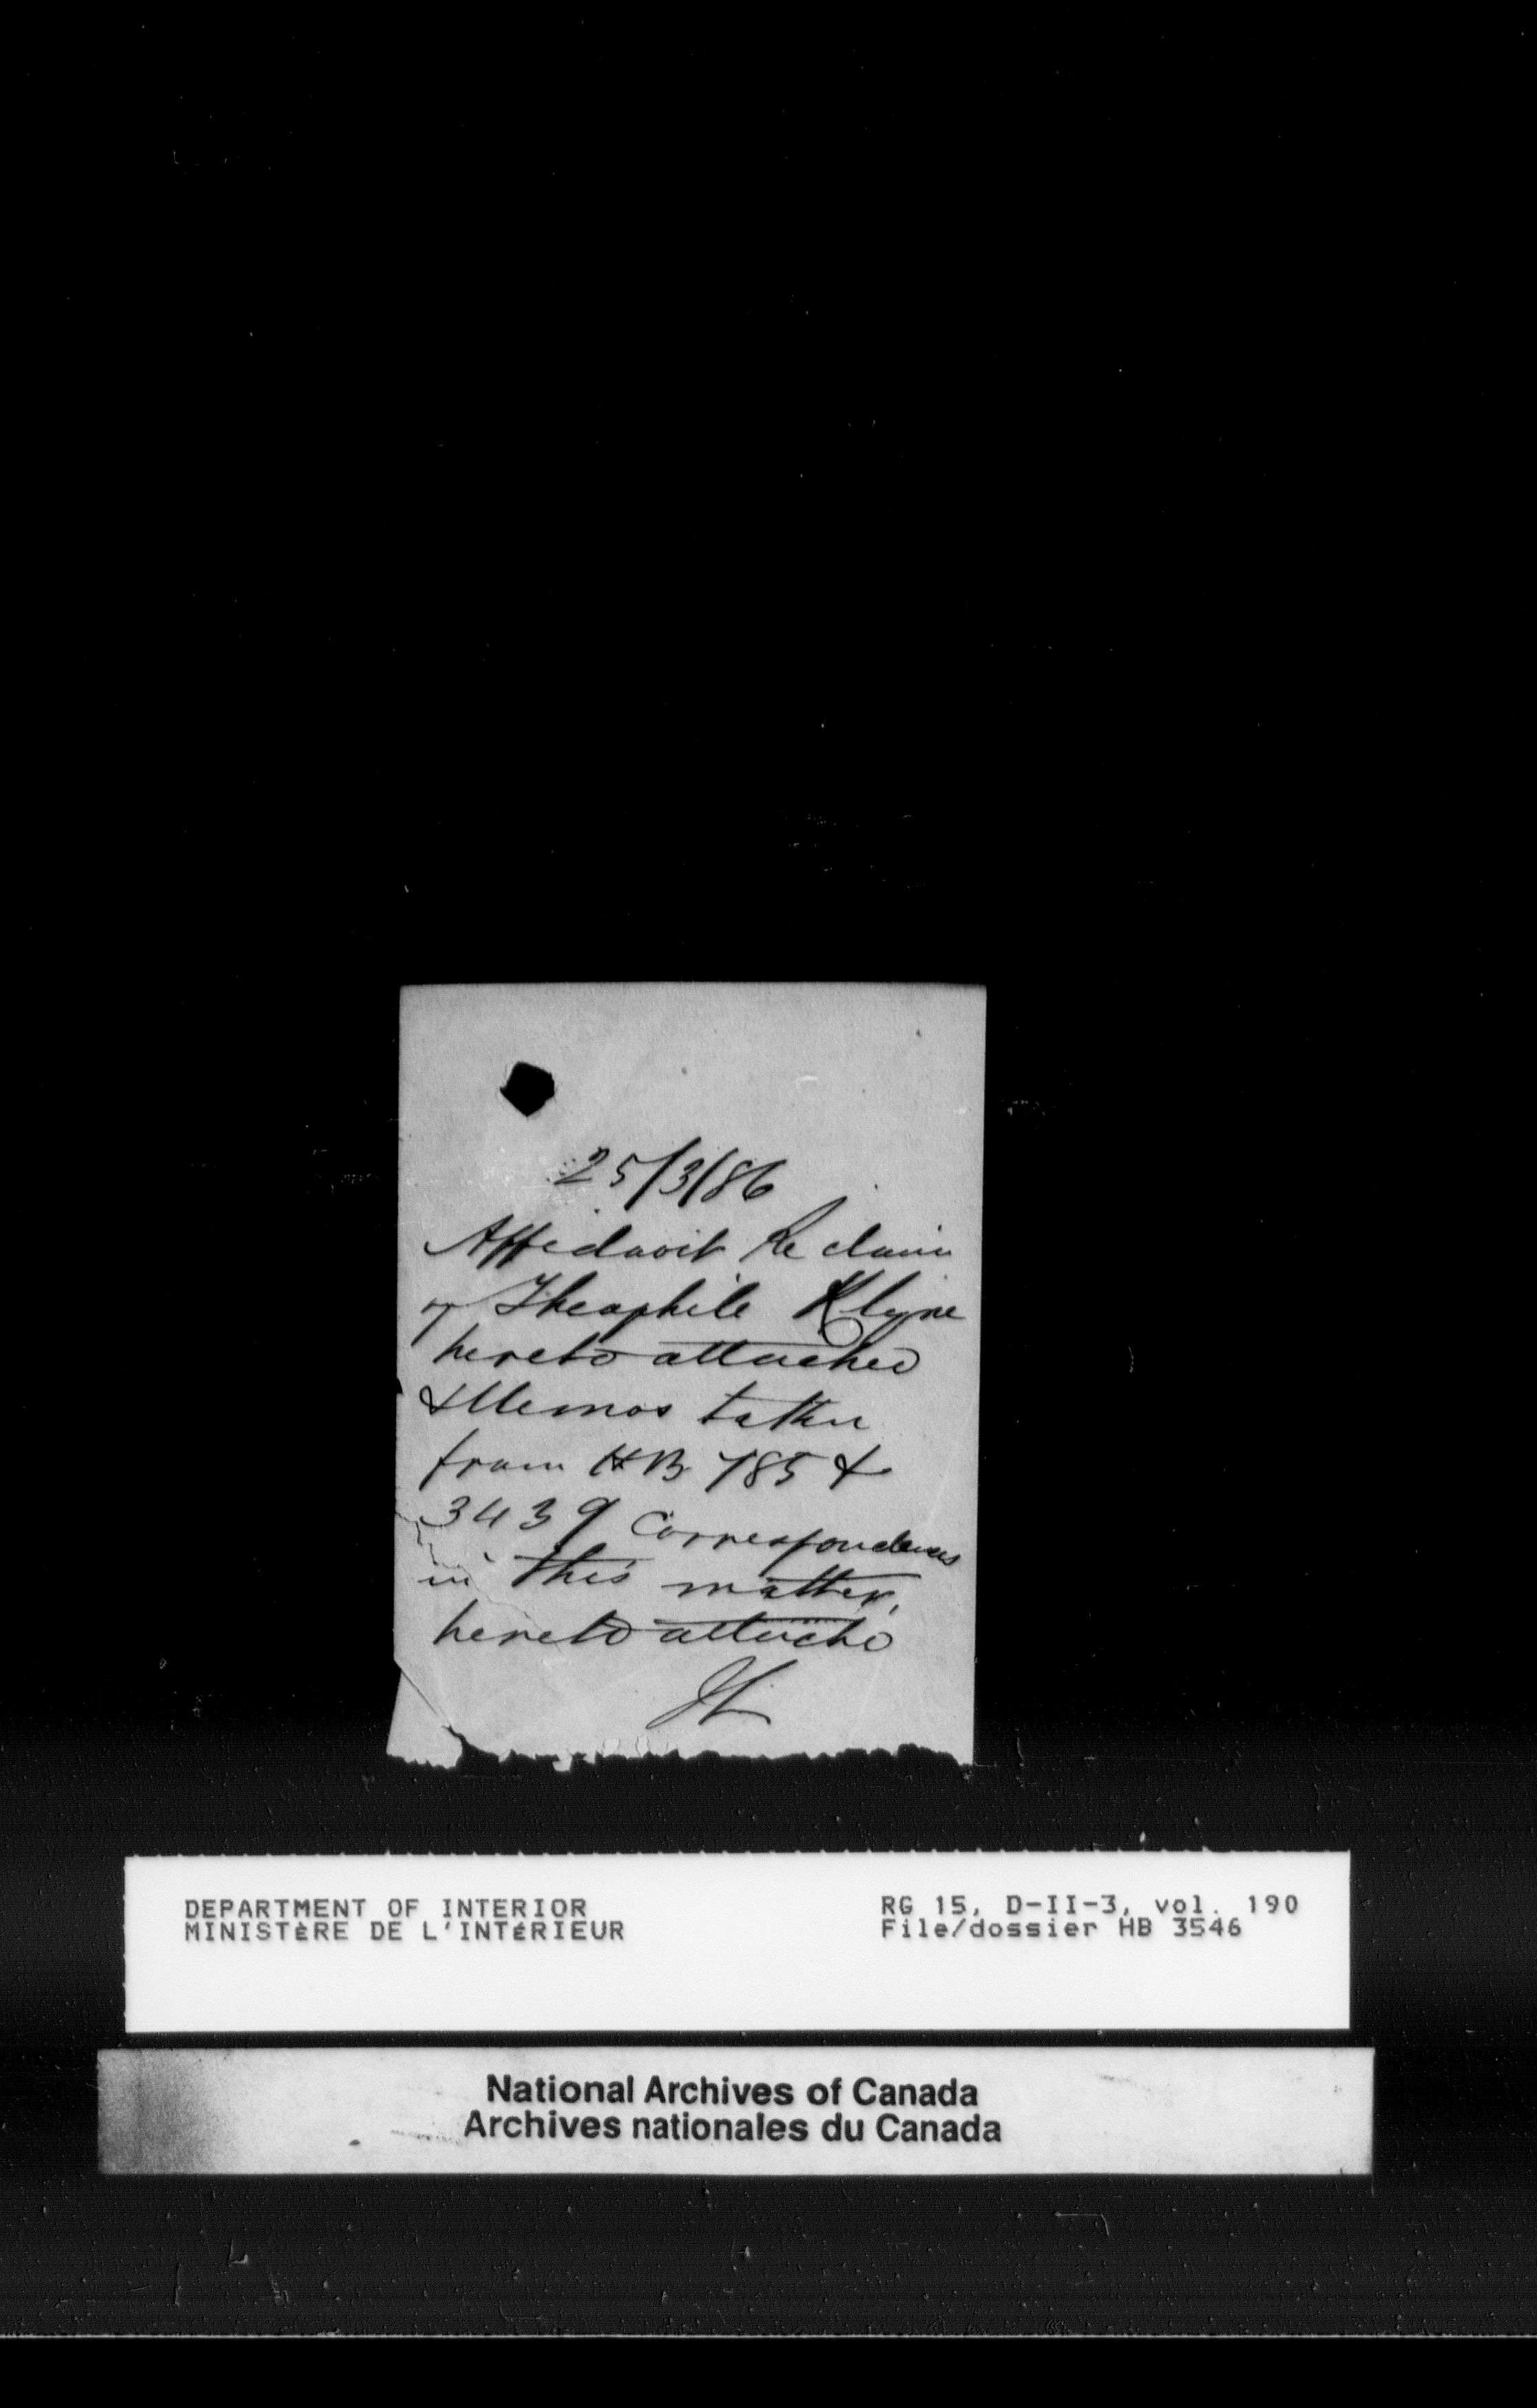 25/3/86
Affidavit Re claim
of Theophile Klyne
hereto attached
& Memos taken
from HB 785 &
3439 Correspondences
in this matter,
hereto attached
DEPARTMENT OF INTERIOR
MINISTÈRE DE L'INTÉRIEUR
RG 15, D-II-3, vol. 190
File/dossier HB 3546
National Archives of Canada
Archives nationales du Canada